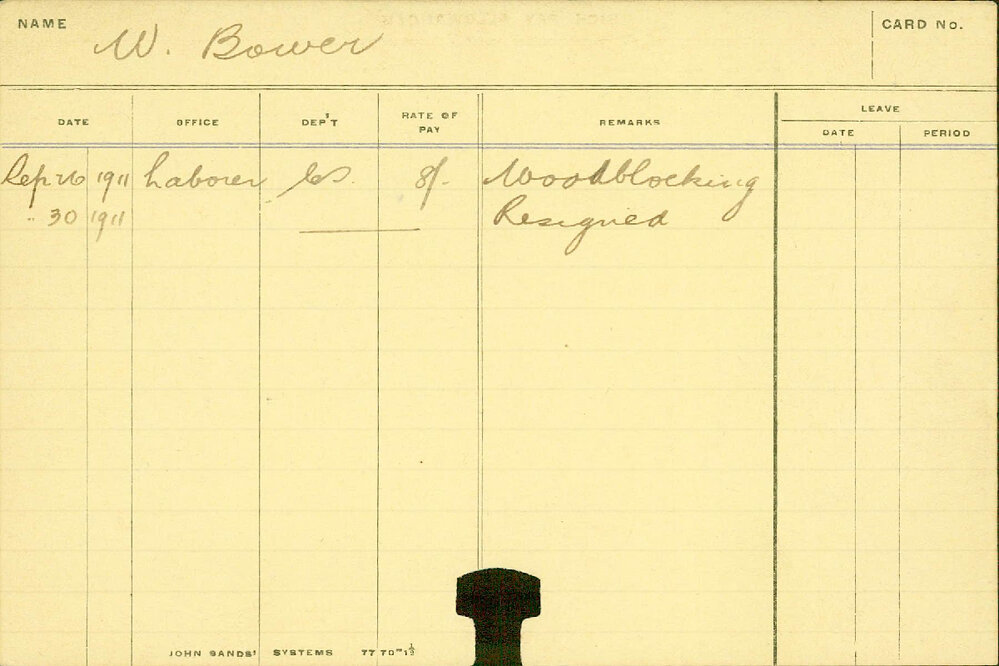 NAME W. Bower CARD No.
DATE OFFICE DEP'T RATE OF PAY REMARKS LEAVE
DATE PERIOD
Sep 26 1911 Laborer CS. 8/- Woodblocking
" 30 1911 Resigned
JOHN SANDS' SYSTEMS 77 70